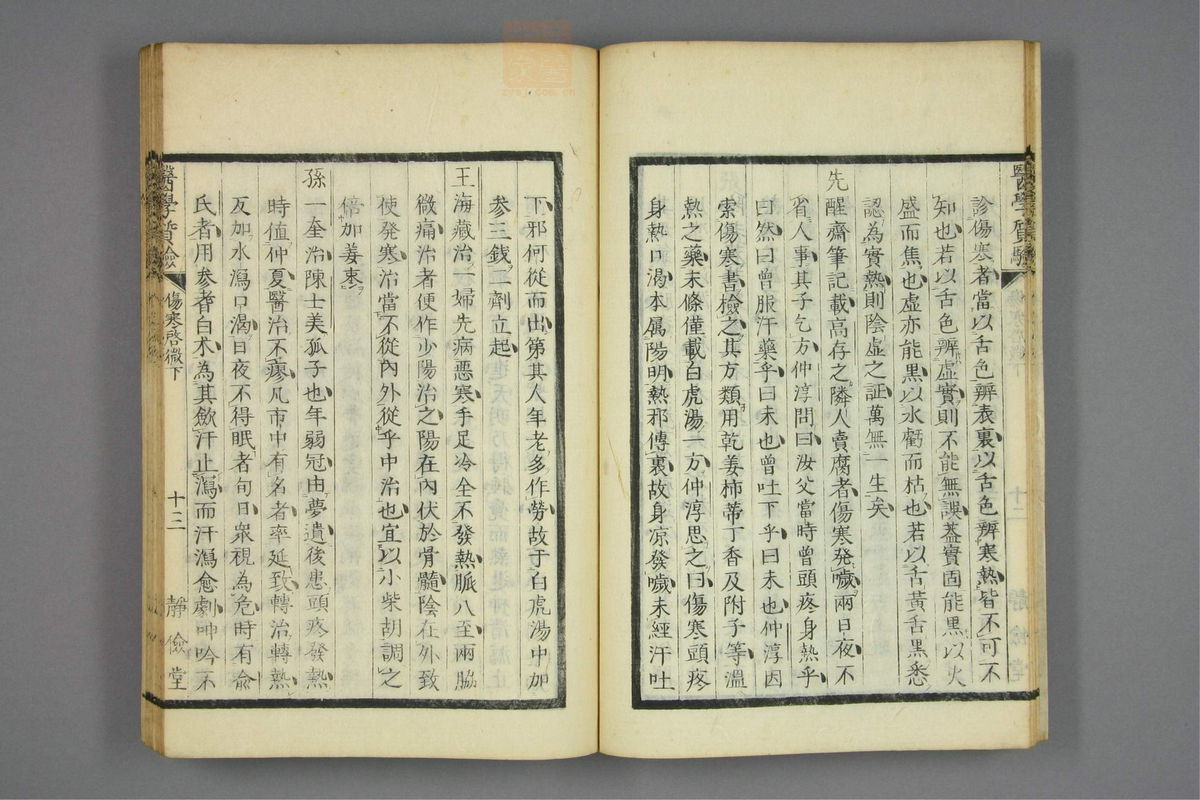 診傷寒者當以舌色辨表裏以舌色辨寒熱皆不可不
知也若以舌色辨虛實則不能無誤蓋實固能黑以火
盛而焦也虛亦能黑以水虧而枯也若以舌黃舌黑悉
認為實熱則陰虛之証萬無一生矣
先醒齋筆記載高存之隣人賣腐者傷寒發噦兩日夜不
省人事其子乞方仲淳問曰汝父當時曾頭疼身熱乎
曰然曰曾服汗藥乎曰未也曾吐下乎曰未也仲淳因
索傷寒書檢之其方類用乾姜柿蒂丁香及附子等溫
熱之藥末條僅載白虎湯一方仲淳思之曰傷寒頭疼
身熱口渴本属陽明熱邪傳裏故身凉發噦未經汗吐
醫學質驗
下邪何從而出第其人年老多作勞故于白虎湯中加
參三錢二劑立起
王海藏治一婦先病惡寒手足冷全不發熱脈八至兩脇
微痛治者便作少陽治之陽在內伏於骨髓陰在外致
使發寒治當不從內外從乎中治也宜以小柴胡調之
倍加姜棗
孫一奎治陳士美孤子也年弱冠由夢遺後患頭疼發熱
時值仲夏醫治不瘳凡市中有名者率延致轉治轉熱
反加水瀉口渴日夜不得眠者旬日衆視為危時有俞
氏者用参耆白朮為其斂汗止瀉而汗瀉愈劇呻吟不
醫學質驗 傷寒啓微下 十三 靜儉堂